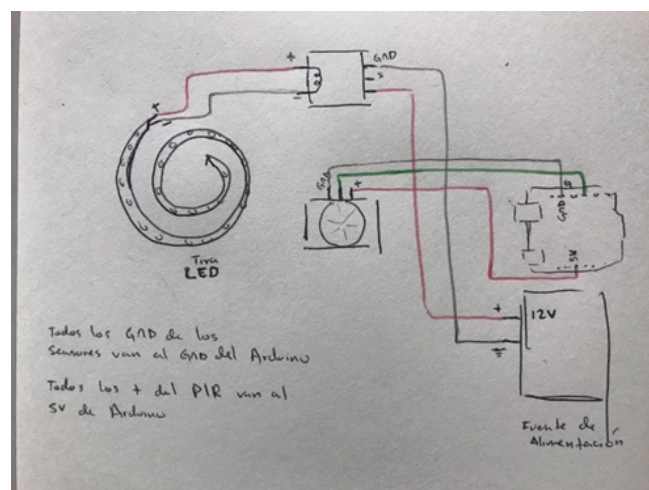 +
GND
S
-
+
-
GND
+
GND
5V
Tira
LED
+
12V
Todos los GND de los
Sensores van al GND del Arduino
Todos los + del PIR van al
5V de Arduino
Fuente de
Alimentación